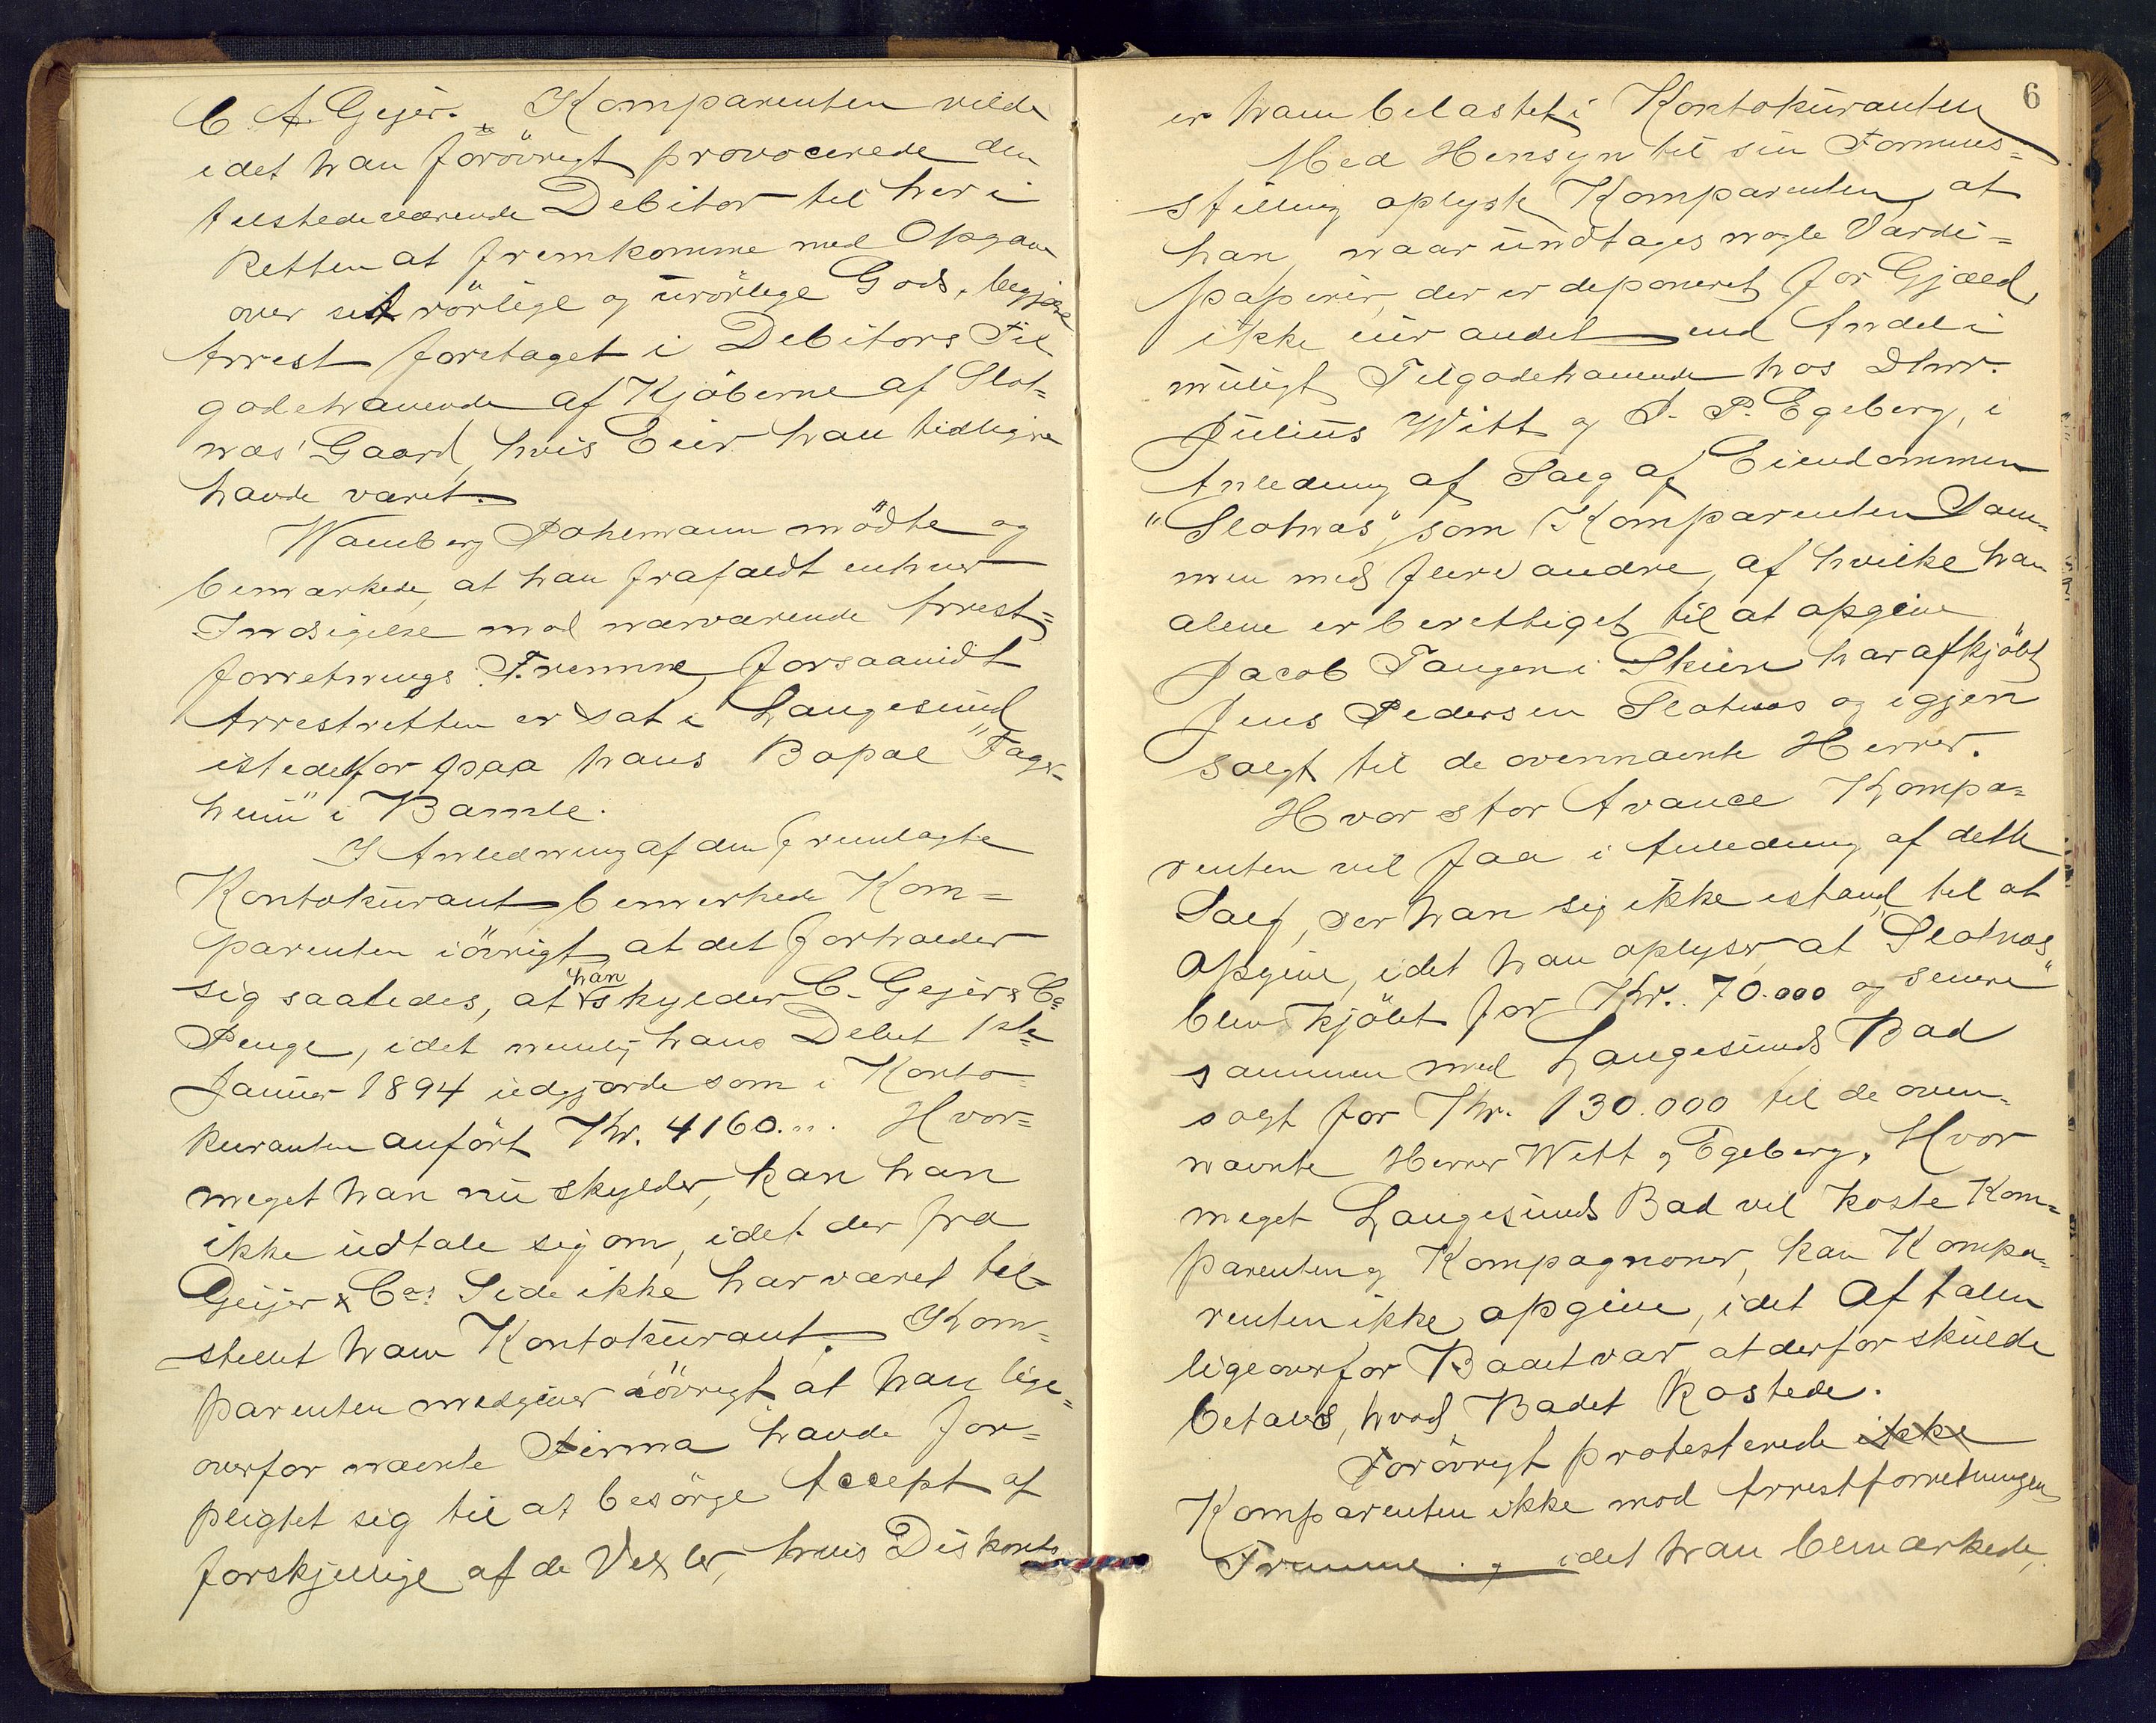 C. A. Gejer. Komparenten vilde
idet han forövrigt provocerede den
tilstedeværende Debitor til her i
Retten at fremkomme med Opgave
over sit rörlige og urörlige Gods, begjære
Arrest foretaget i Debitors Til
godehavende af Kjöberne af Slot=
næs' Gaard, hvis Eier han tidligere
havde været.
Wamberg Pohemann mödte og
bemærkede, at han frafaldt enhver
Indsigelse mod nærværende Arrest=
forretnings Fremme, forsaavidt
Arrestretten er sat i Langesund
istedetfor paa hans Bopæl "Fager-
heim" i Bamle.
I Anledning af den fremlagte
Kontokurant bemerkede Kom=
parenten iövrigt, at det forholder
sig saaledes, at han skylder C. Gejer & Co
Penge, idet nemlig hans Debet 1ste
Januar 1894 udgjorde som i Konto=
kuranten anfört Kr. 4160.... Hvor=
meget han nu skylder, kan han
ikke udtale sig om, idet der fra
Geijer & Cos Side ikke har været til=
stillet ham Kontokurant. Kom=
parenten medgiver iövrigt, at han lige=
overfor nævnte Firma havde for=
pligtet sig til at besörge Accept af
forskjellige af de Vexler, hvis Diskonto
6
er ham belastet i Kontokuranten
Med Hensyn til sin Formues=
stilling oplyste Komparenten, at
han, naar undtages nogle Værdi=
papirer, der er deponeret for Gjæld,
ikke eier andet end Andel i
muligt Tilgodehavende hos DHrr.
Julius Witt og J. P. Egeberg, i
Anledning af Salg af Eiendommen
"Slotnæs", som Komparenten Sam=
men med flere andre, af hvilke han
alene er berettiget til at opgive
Jacob Tangen i Skien har afkjöbt
Jens Pedersen Slotnæs og igjen
solgt til de ovennævnte Herrer.
Hvor stor Avance Kompa=
renten vil faa i Anledning af dette
Salg, ser han sig ikke istand til at
opgive, idet han oplyser, at "Slotnæs"
blev kjöbt for Kr. 70.000 og senere
sammen med Langesunds Bad
solgt for Kr. 130.000 til de oven=
nævnte Herrer Witt og Egeberg. Hvor
meget Langesunds Bad vil koste Kom=
parenten og Kompagnoner, kan Kompa=
renten ikke opgive, idet Aftalen
ligeoverfor Badet var, at derfor skulde
betales, hvad Badet kostede.
Forövrigt protesterede ikke
Komparenten ikke mod Arrestforretningens
Fremme og idet han bemærkede,